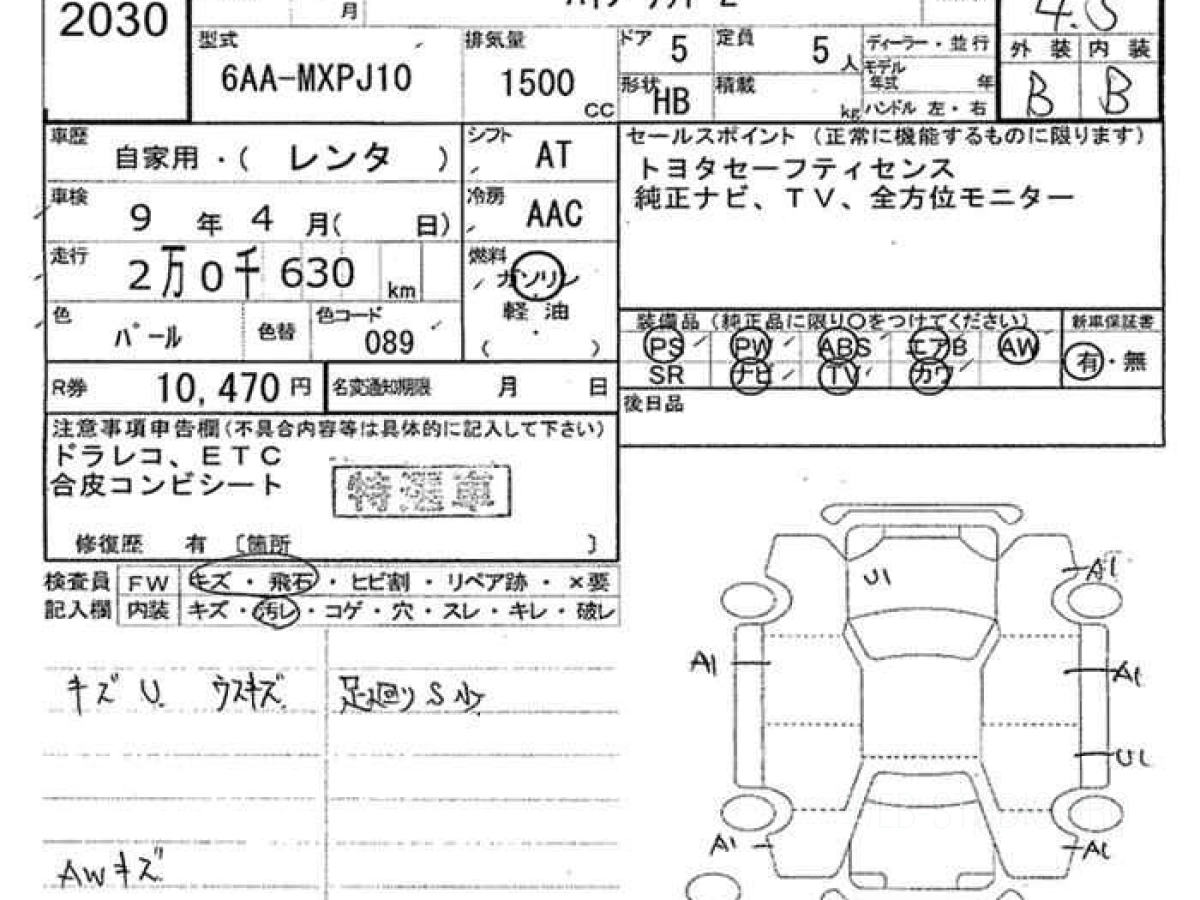 2030
月
4.5
型式
6AA-MXPJ10
排気量
1500
cc
ドア 5
形状 HB
定員 5 人
積載 kg
ディーラー・並行
モデル年式 年
ハンドル 左・右
外装 内装
B B
車歴 自家用・( レンタ )
シフト AT
車検 9 年 4 月( 日)
冷房 AAC
走行 2万0千630 km
燃料
ガソリン
軽油
( ・ )
色 パール
色替
色コード 089
R券 10,470 円
名変通知期限 月 日
セールスポイント (正常に機能するものに限ります)
トヨタセーフティセンス
純正ナビ、TV、全方位モニター
装備品 (純正品に限り○をつけてください)
PS PW ABS エアB AW
SR ナビ TV カワ
新車保証書
有・無
後日品
注意事項申告欄(不具合内容等は具体的に記入して下さい)
ドラレコ、ETC
合皮コンビシート
特選車
修復歴 有 〔箇所 〕
検査員 FW キズ・飛石・ヒビ割・リペア跡・×要
記入欄 内装 キズ・汚レ・コゲ・穴・スレ・キレ・破レ
キズ U ウスキズ 足廻りS少
AWキズ
U1
A1
A1
A1
U1
A1
A1